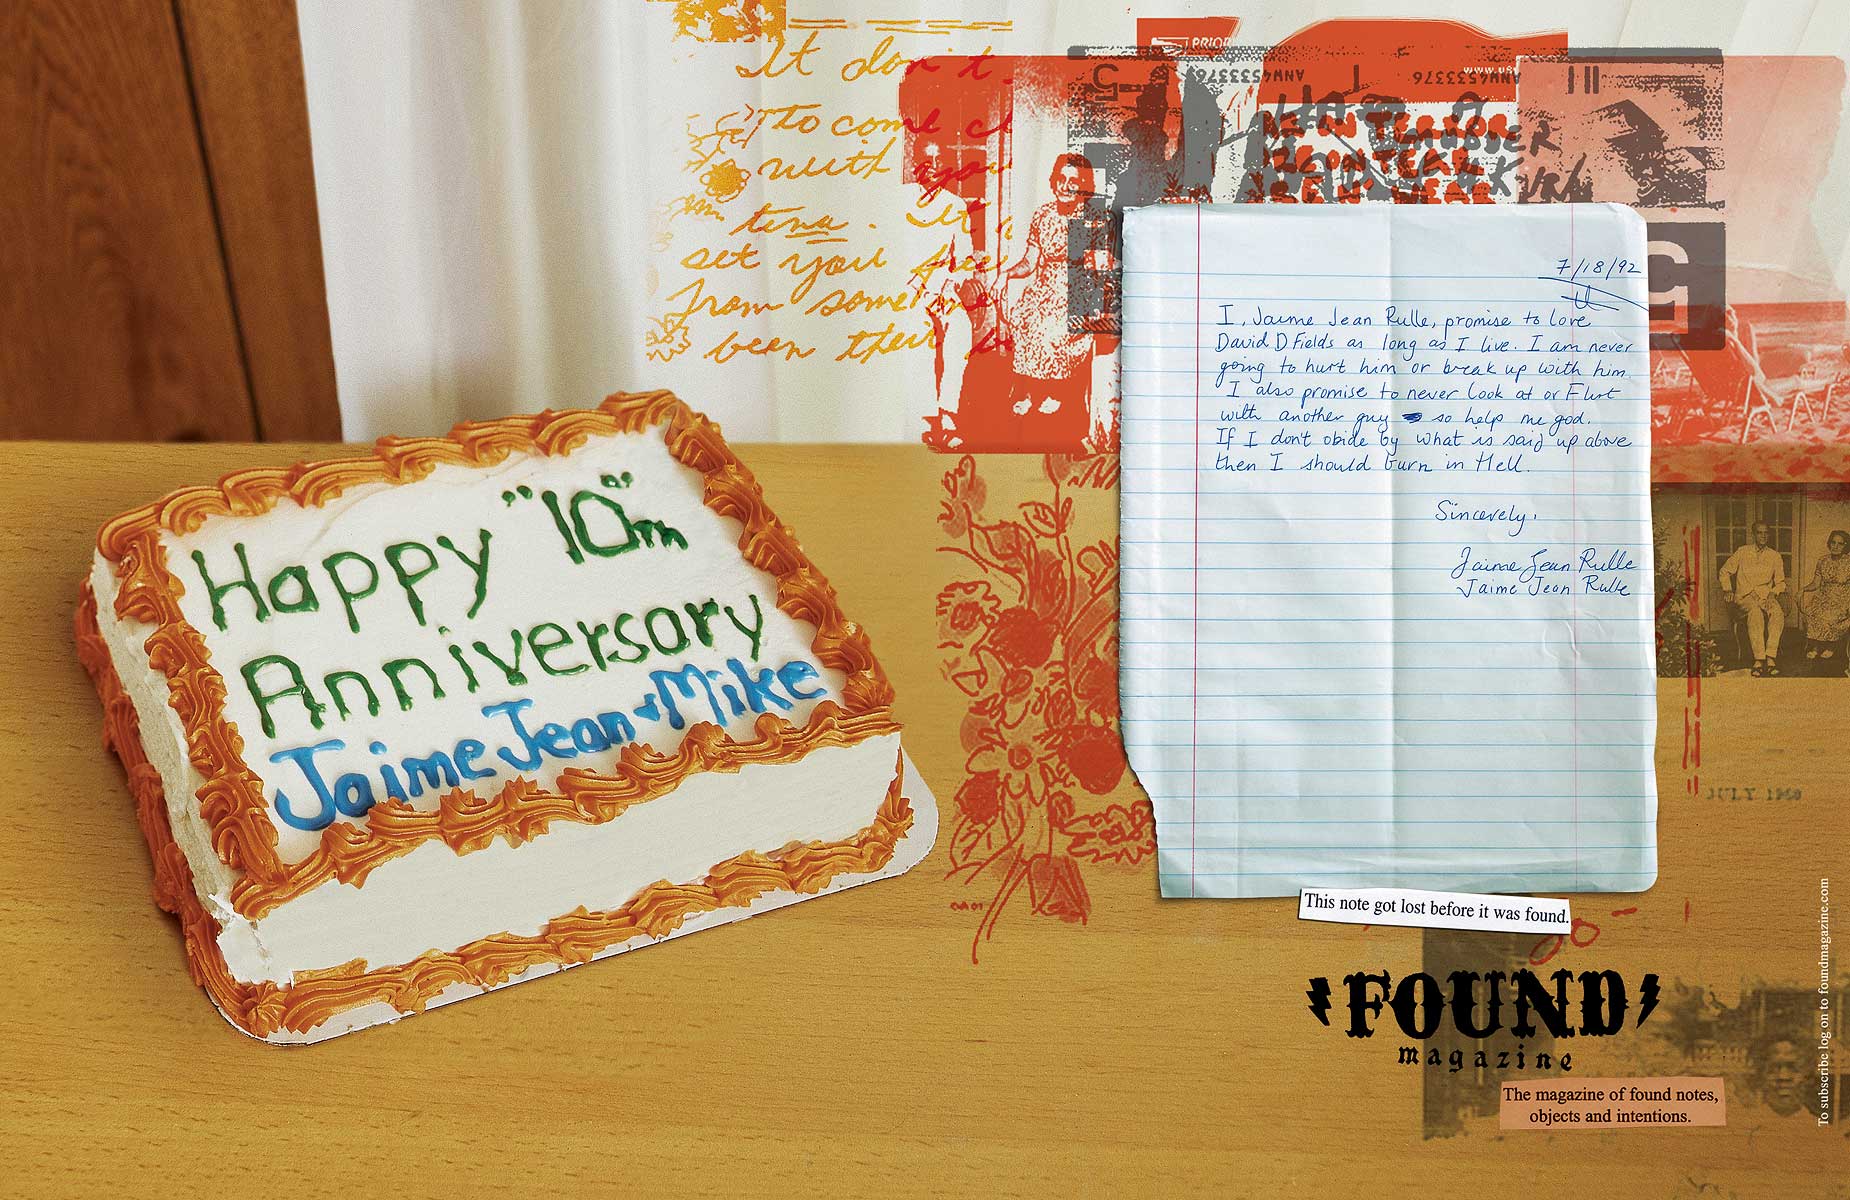 Happy "10"th
Anniversary
Jaime Jean & Mike
It don't
to come
with you
tena. It
set you free
from some
been their
PRIOR
ANW4533376
ANW4533376
7/18/92
I, Jaime Jean Rulle, promise to love
David D Fields as long as I live. I am never
going to hurt him or break up with him.
I also promise to never look at or Flirt
with another guy so help me god.
If I don't obide by what is said up above
then I should burn in Hell.
Sincerely,
Jaime Jean Rulle
Jaime Jean Rulle
JULY 1960
This note got lost before it was found.
FOUND
magazine
The magazine of found notes,
objects and intentions.
To subscribe log on to foundmagazine.com